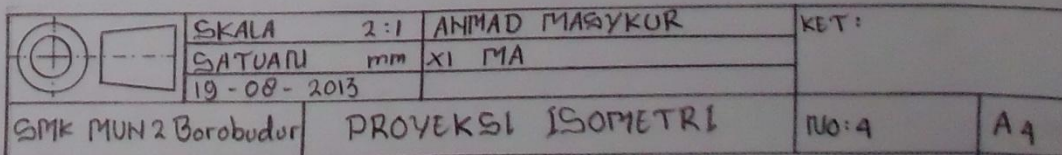 SKALA 2:1 AHMAD MASYKUR KET:
SATUAN mm XI MA
19-08-2013
SMK MUN2 Borobudur PROYEKSI ISOMETRI NO:4 A4